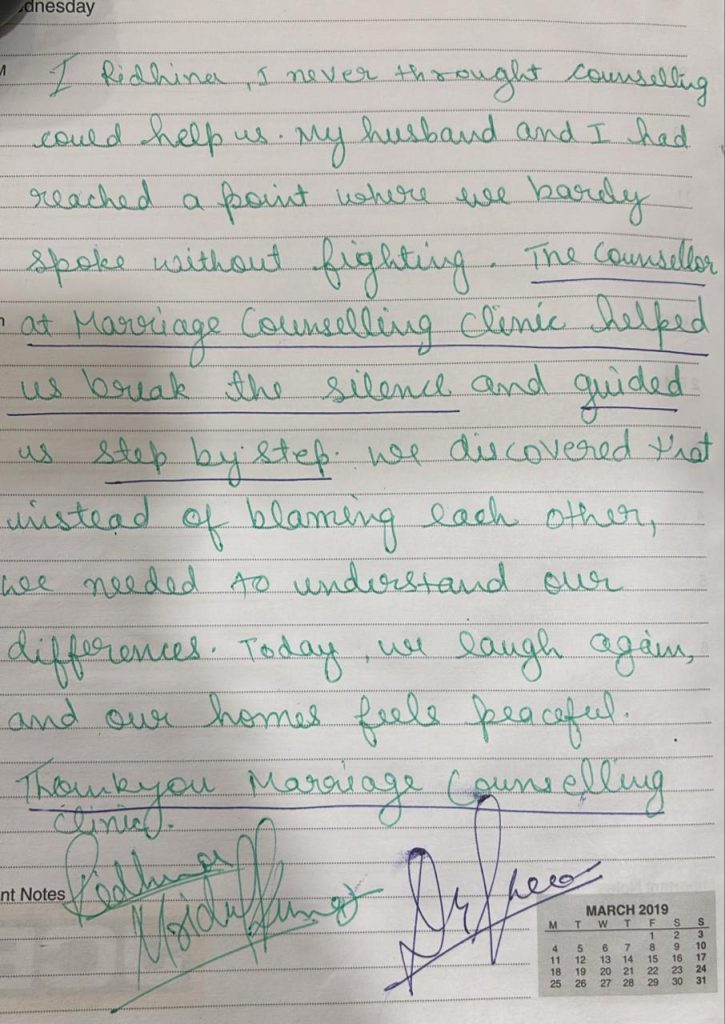 dnesday
I Ridhina, I never throught counselling
could help us. My husband and I had
reached a point where we barely
spoke without fighting. The Counsellor
at Marriage Counselling Clinic helped
us break the silence and guided
us step by step. we discovered that
instead of blaming each other,
we needed to understand our
differences. Today, we laugh again,
and our homes feels peaceful.
Thankyou Marriage Counselling
Clinic.
nt Notes
Ridhina
MARCH 2019
M T W T F S S
1 2 3
4 5 6 7 8 9 10
11 12 13 14 15 16 17
18 19 20 21 22 23 24
25 26 27 28 29 30 31